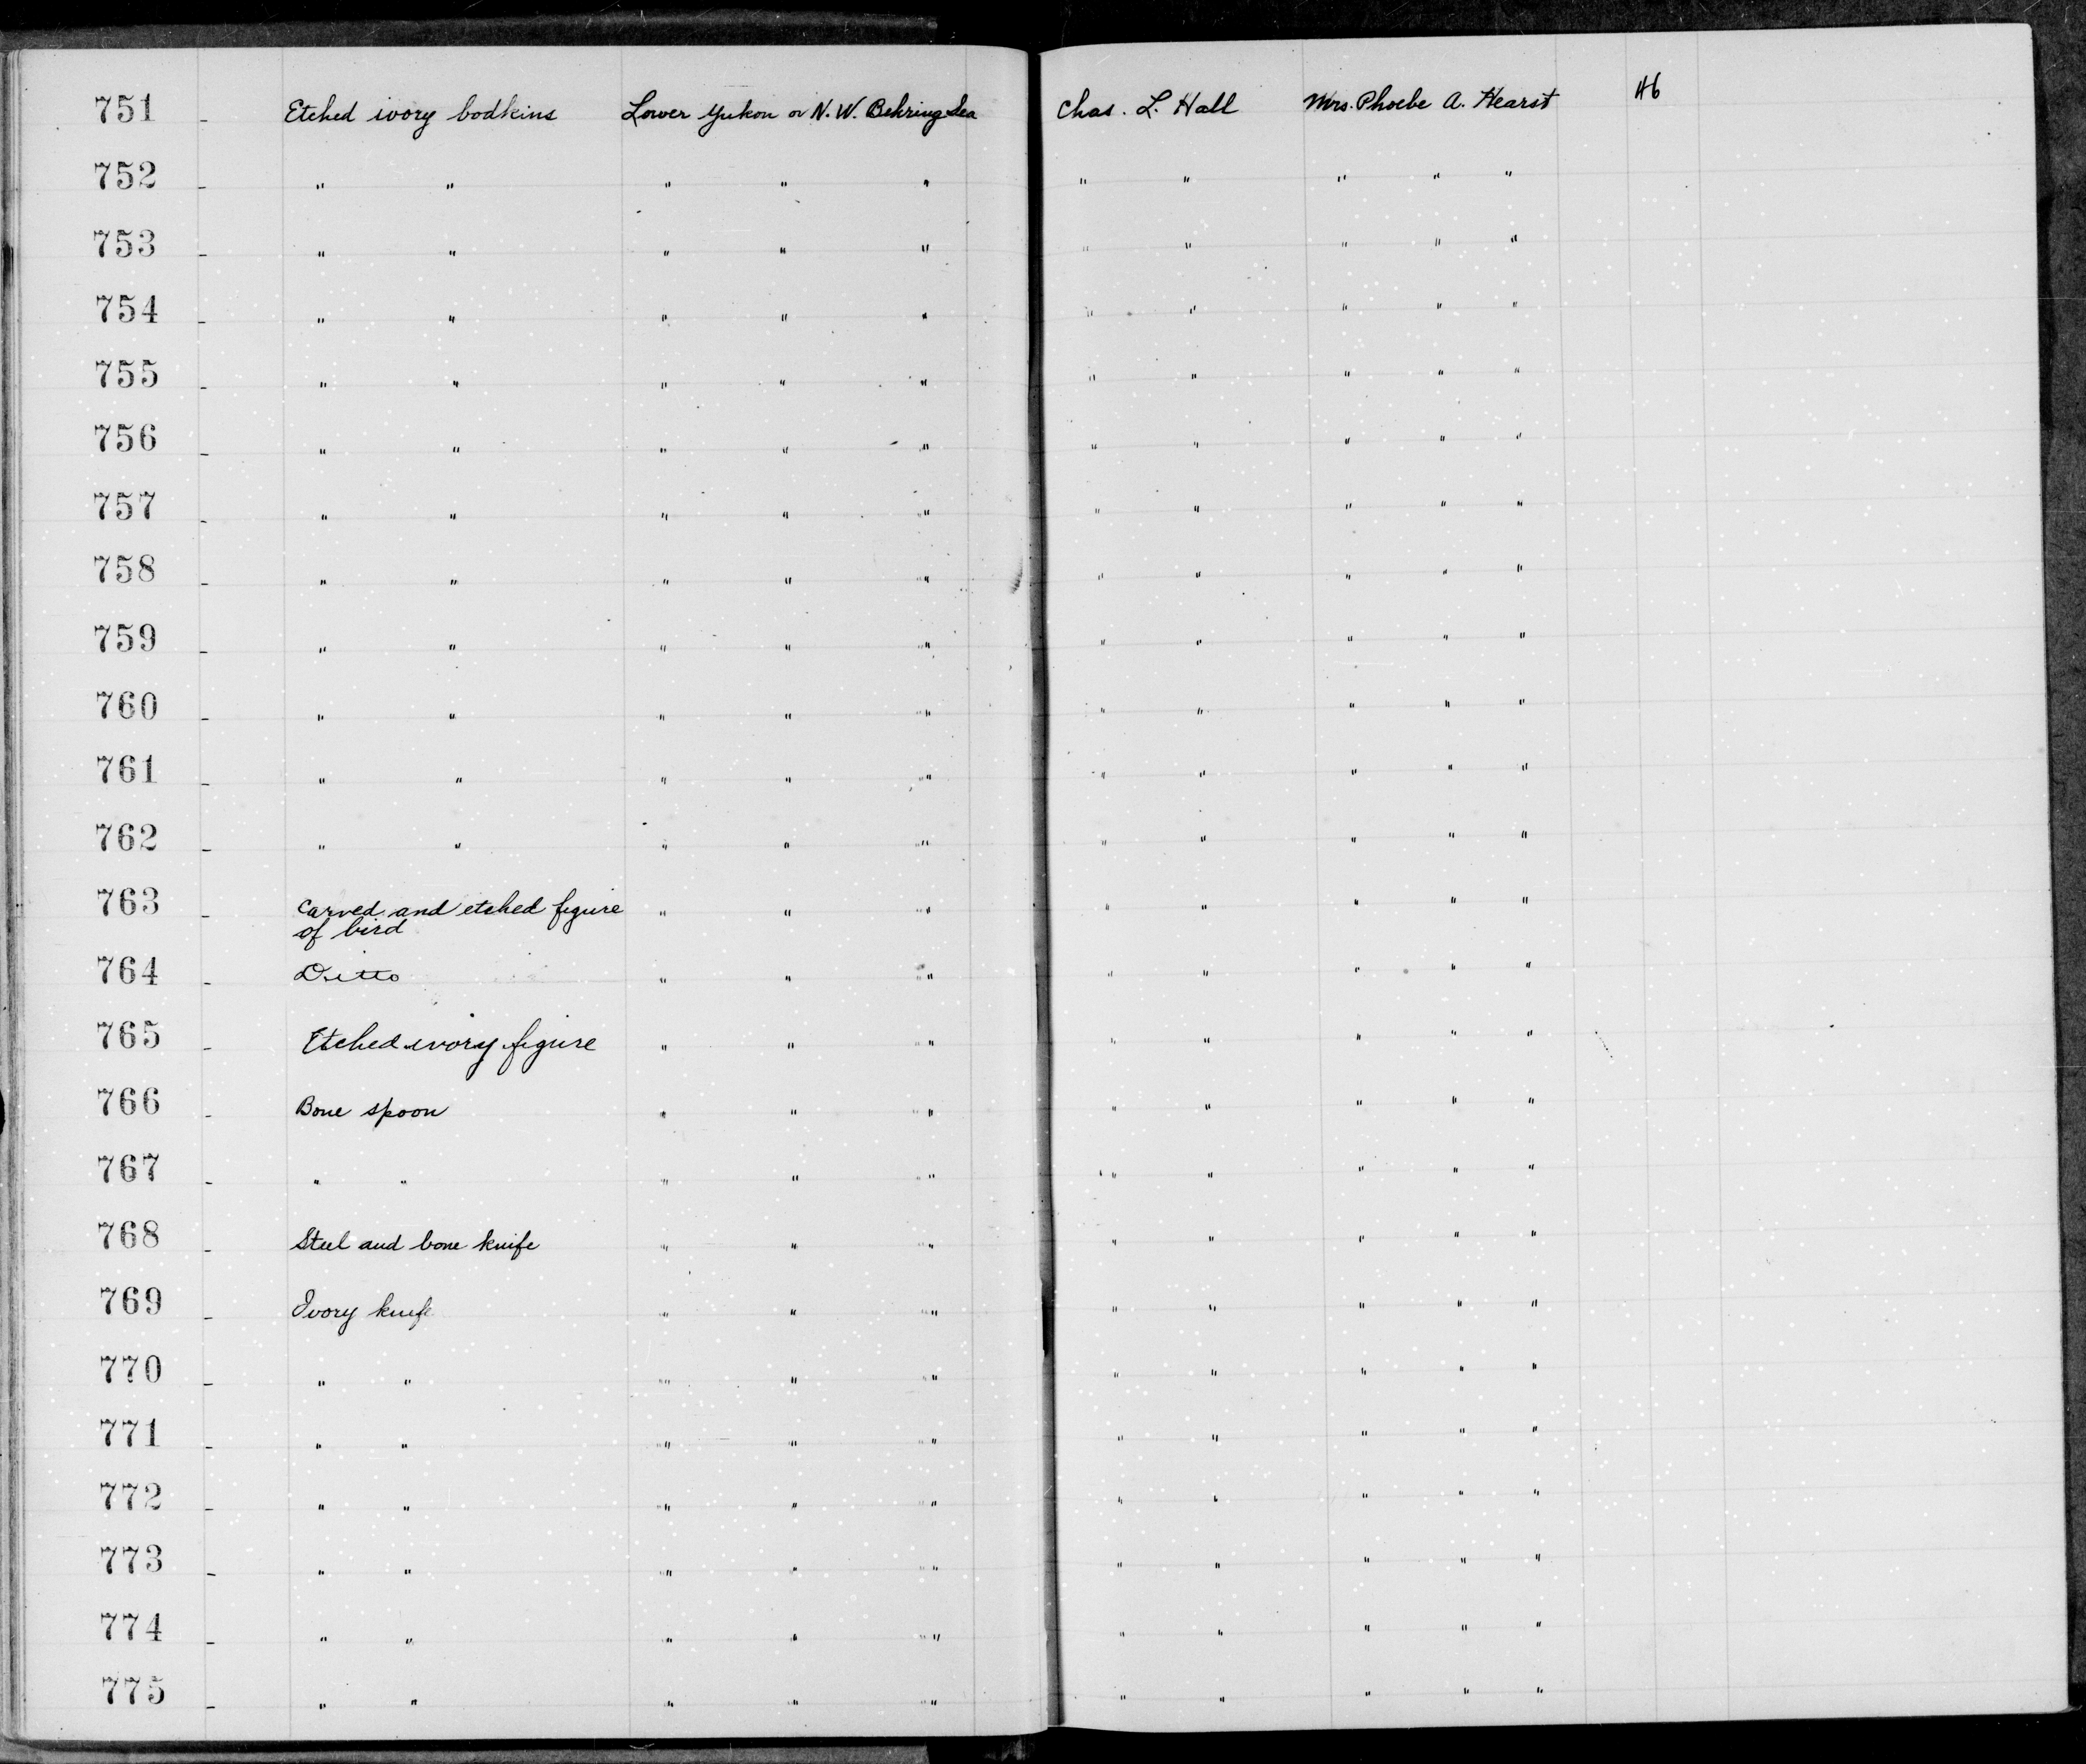 751 - Etched ivory bodkins Lower Yukon or N. W. Behring Sea Chas. L. Hall Mrs. Phoebe A. Hearst 46
752 - " " " " " " " " " "
753 - " " " " " " " " " "
754 - " " " " " " " " " "
755 - " " " " " " " " " "
756 - " " " " " " " " " "
757 - " " " " " " " " " "
758 - " " " " " " " " " "
759 - " " " " " " " " " "
760 - " " " " " " " " " "
761 - " " " " " " " " " "
762 - " " " " " " " " " "
763 - Carved and etched figure " " " " " " " "
of bird
764 - Ditto " " " " " " " "
765 - Etched ivory figure " " " " " " " "
766 - Bone spoon " " " " " " " "
767 - " " " " " " " " " "
768 - Steel and bone knife " " " " " " " "
769 - Ivory knife " " " " " " " "
770 - " " " " " " " " " "
771 - " " " " " " " " " "
772 - " " " " " " " " " "
773 - " " " " " " " " " "
774 - " " " " " " " " " "
775 - " " " " " " " " " "